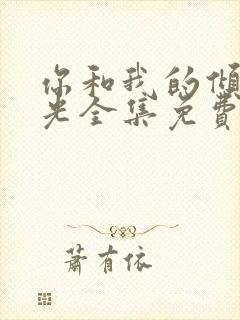 你和我的倾
光全集免費
蕭有依